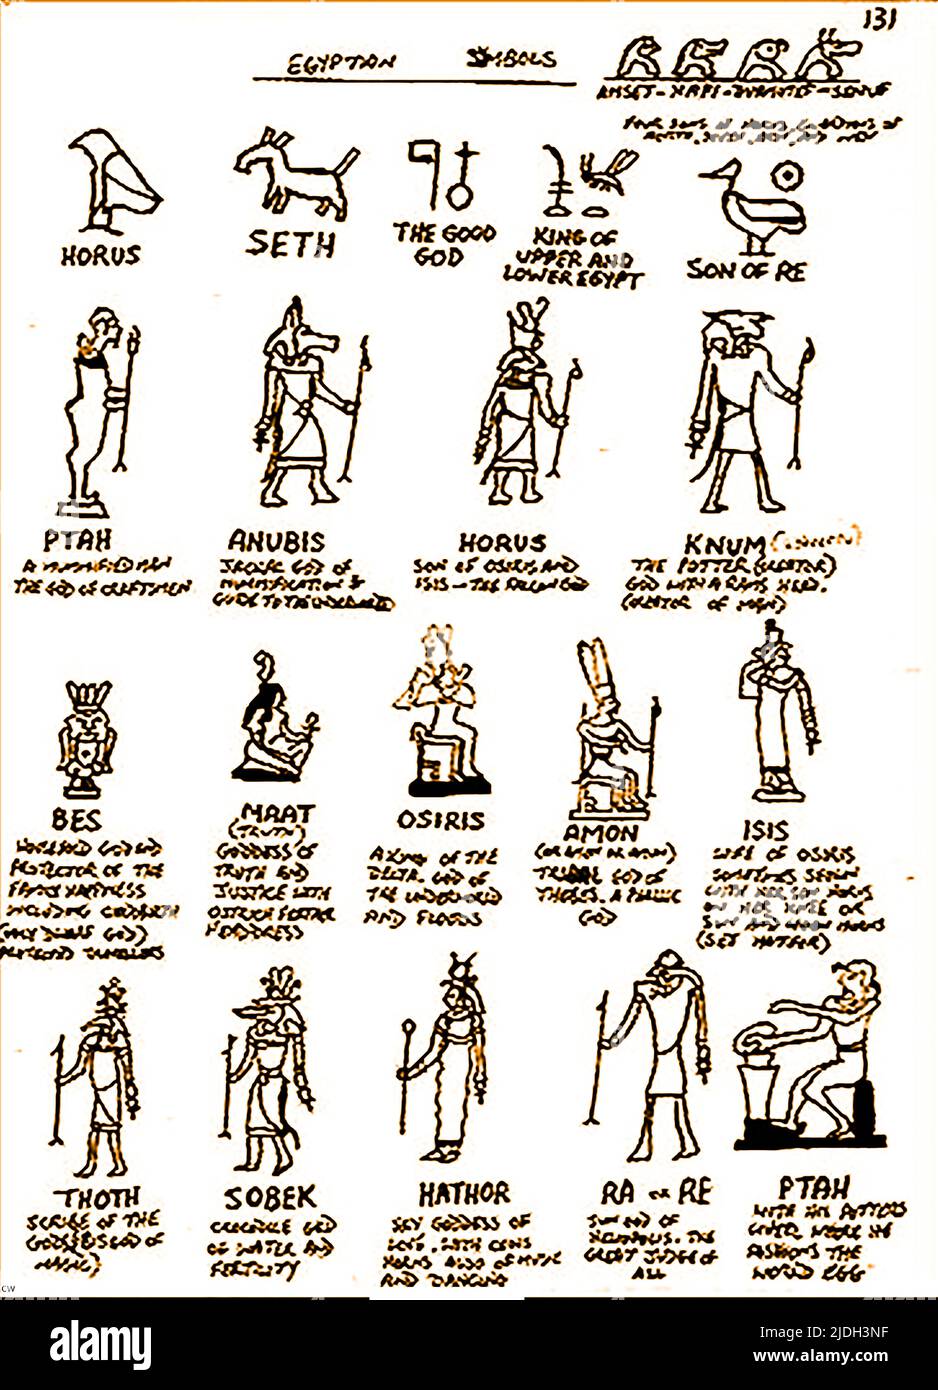 131
EGYPTIAN SYMBOLS
AMSET - HAPI -
HORUS
SETH
THE GOOD
GOD
KING OF
UPPER AND
LOWER EGYPT
SON OF RE
PTAH
A MUMMIFIED MAN
THE GOD OF CRAFTSMEN
ANUBIS
JACKAL GOD OF
MUMMIFICATION &
GUIDE TO THE
HORUS
SON OF OSIRIS AND
ISIS - THE FALCON GOD
KNUM
THE POTTER (CREATOR)
GOD WITH A RAMS HEAD.
(CREATOR OF MEN)
BES
HOUSEHOLD GOD AND
PROTECTOR OF THE
FAMILY HAPPINESS
INCLUDING CHILDBIRTH
(UGLY DWARF GOD)
TUMBLERS
MAAT
(TRUTH)
GODDESS OF
TRUTH AND
JUSTICE WITH
OSTRICH FEATHER
HEADDRESS
OSIRIS
A KING OF THE
DELTA. GOD OF
THE UNDERWORLD
AND FLOODS
AMON
(OR AMEN OR AMUN)
TRIBAL GOD OF
THEBES. A PUBLIC
GOD
ISIS
WIFE OF OSIRIS
SOMETIMES SEEN
WITH HER SON HORUS
ON HER KNEE OR
SUN AND HORNS
(SEE HATHOR)
THOTH
SCRIBE OF THE
GODS (IBIS GOD OF
MAGIC)
SOBEK
CROCODILE GOD
OF WATER AND
FERTILITY
HATHOR
SKY GODDESS OF
LOVE. WITH COWS
HORNS ALSO OF MUSIC
AND DANCING
RA OR RE
SUN GOD OF
HELIOPOLIS. THE
GREAT JUDGE OF
ALL
PTAH
WITH HIS POTTERS
WHEEL WHERE HE
FASHIONS THE
WORLD EGG
CW
alamy
Image ID: 2JDH3NF
www.alamy.com